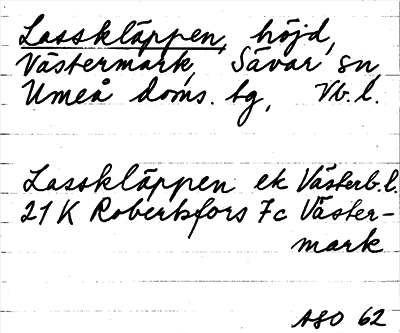 Lasskläppen, höjd,
Västermark, Sävar sn,
Umeå doms. tg, Vb. l.
Lasskläppen ek Västerb. l.
21 K Robertsfors 7c Väster-
mark
ASO 62